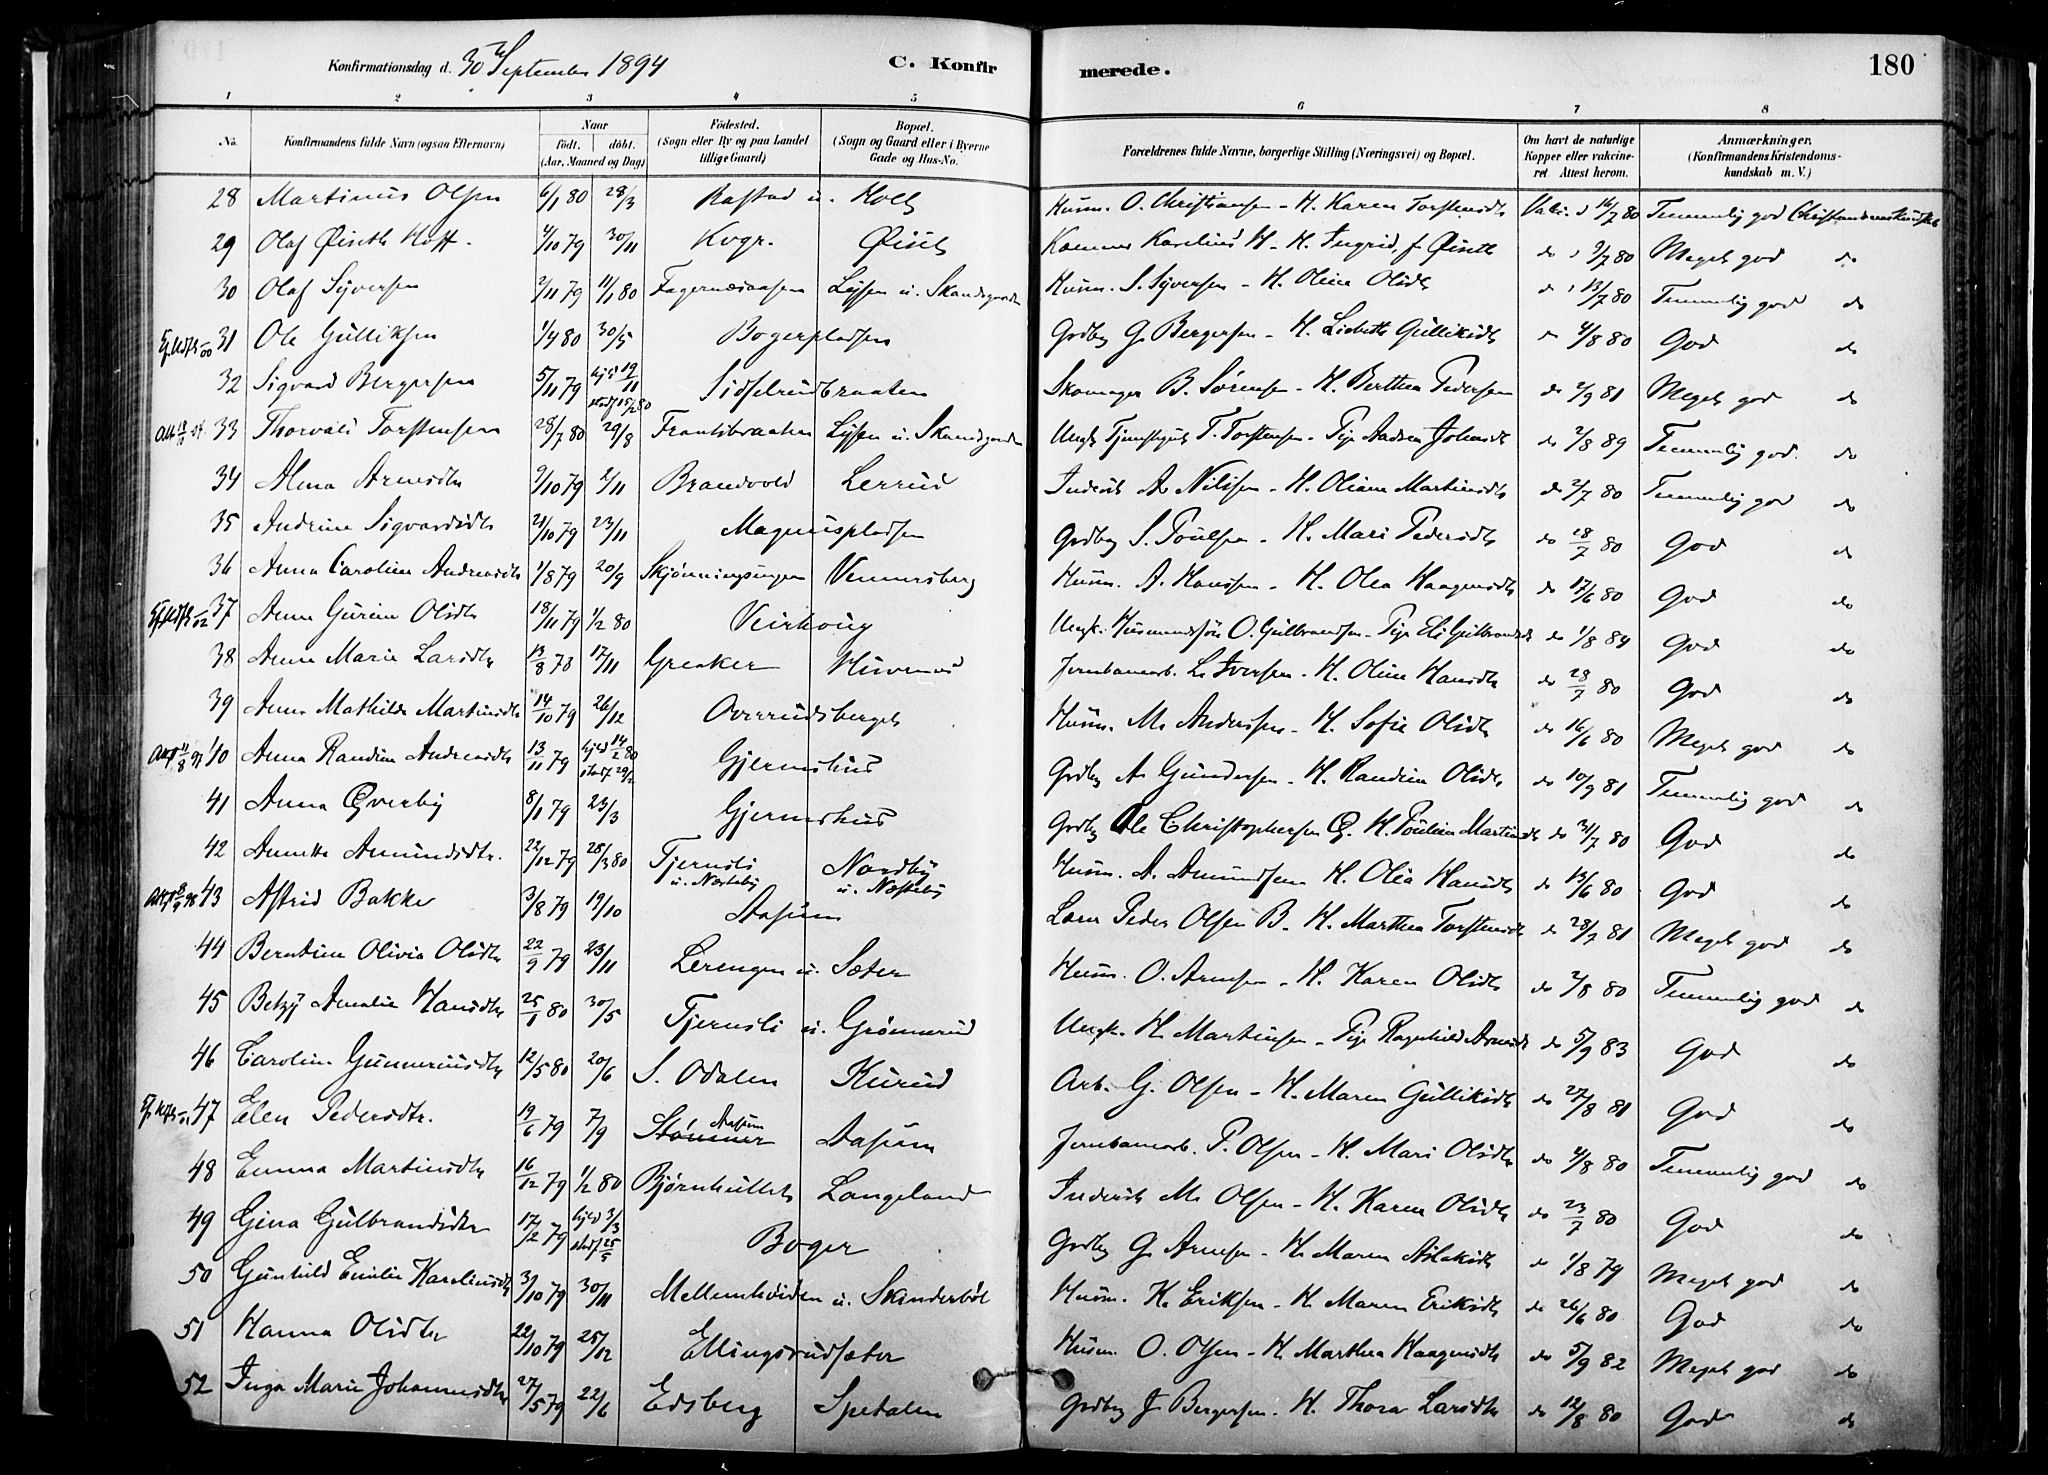 Konfirmationsdag d. 30 September 1894 C. Konfirmerede. 180
1 2 3 4 5 6 7 8
No. Konfirmandens fulde Navn (ogsaa Efternavn) Naar født. døbt. (Aar, Maaned og Dag) Fødested. (Sogn eller By og paa Landet tillige Gaard) Bopæl. (Sogn og Gaard eller i Byerne Gade og Hus-No. Forældrenes fulde Navne, borgerlige Stilling (Næringsvei) og Bopæl. Om havt de naturlige Kopper eller vakcineret Attest herom. Anmærkninger. (Konfirmandens Kristendomskundskab m. V.)
28 Martinus Olsen 6/1 80 28/3 Rastad u. Holt Husm. O. Christiansen - H. Karen Torstensdtr 16/7 80 Temmelig god
29 Olaf Øiseth Hoff. 4/10 79 30/11 Kvgr. Øiset Karelius H - H. Ingrid, f Øiseth do 9/7 80 Meget god do
30 Olaf Syversen 2/11 79 11/1 80 Lysen u. Skandsgaarden Husm. S. Syversen - H. Oline Olsdtr do 13/7 80 Temmelig god do
31 Ole Gulliksen 1/4 80 30/5 Bogerpladsen Grdbg G. Bergersen - H. Lisbeth Gulliksdtr 4/8 80 God do
32 Sigvard Bergersen 5/11 79 hjd 19/11 stadf 15/2 80 Sidselrudbraaten Skomager B. Sørensen - H. Berthea Pedersen do 2/9 81 Meget god do
33 Thorvald Torstensen 28/7 80 29/8 Frantsbraaten Lysen u. Skandsgaarden Ungk Tjenstegut T. Torstensen - Pige Andrea Johnsdtr do 2/8 89 Temmelig god do
34 Alma Arnesdtr 9/10 79 2/11 Brandvold Lerrud Inderst A. Nilssen - H. Oliane Martinsdtr do 2/7 80 Temmelig god do
35 Andrine Sigvardsdtr 21/10 79 23/11 Magnuspladsen Grdbg S. Poulsen - H. Mari Pedersdtr do 28/7 80 God do
36 Anna Caroline Andreasdtr 1/8 79 20/9 Skjønningsengen Vennersberg Husm. A. Hanssen - H. Olea Haagensdtr do 17/6 80 God do
37 Anne Gurine Olsdtr 18/11 79 1/2 80 Veirhoug Ungk. Husmandssøn O. Gulbrandsen - Pige Eli Gulbrandsdtr do 1/8 84 God do
38 Anne Marie Larsdtr 13/8 78 17/11 Greaker Huvenes Jernbanearb. L. Iversen - H. Oline Hansdtr do 28/7 80 God do
39 Anne Mathilde Martinsdtr 14/10 79 26/12 Overudsberget Husm. M. Andersen - H. Sofie Olsdtr do 16/6 80 Meget god do
40 Anna Randine Andreasdtr 13/11 79 hjd 14/2 80 stadf 29/2 Gjermshus Grdbg A. Gundersen - H. Randine Olsdtr do 10/9 81 Temmelig god do
41 Anna Qverby 8/1 79 23/3 Gjermshus Grdbg Ole Christophersen Q. H. Pouline Martinsdtr do 31/7 80 God do
42 Annette Amundsdtr. 22/12 79 28/3 80 Tjernsli u. Næsteby Nordby u. Næsteby Husm. A. Amundsen H. Olea Hansdtr do 13/6 80 God do
43 Astrid Bakke 3/8 79 19/10 Aasum Lærer Peder Olsen B. H. Marthea Torstensdtr do 28/7 81 Meget god do
44 Berntine Olivia Olsdtr 22/9 79 23/11 Lerengen u. Sæter Husm. O. Arnesen - H. Karen Olsdtr do 2/8 80 Temmelig god do
45 Betzy Amalie Hansdtr 25/1 80 30/5 Tjernsli u. Grønnerud Ungk. H. Martinsen - Pige Ragnhild Arnesdtr do 5/9 83 God do
46 Caroline Gunneriusdtr 12/5 80 20/6 S. Odalen Kurud Arb. G. Olsen - H. Maren Gulliksdtr do 27/8 81 God do
47 Elen Pedersdtr. 19/6 79 7/9 Aasum Aasum Jernbanearb. P. Olsen - H. Mari Olsdtr do 4/8 80 Temmelig god do
48 Emma Martinsdtr 16/12 79 1/2 80 Bjørnhullet Langeland Inderst M. Olsen - H. Karen Olsdtr do 23/7 80 God do
49 Gina Gulbrandsdtr 17/2 79 hjd 3/3 stadf 25/5 Boger Grdbg G. Arnesen - H. Maren Aslaksdtr do 1/8 79 Meget god do
50 Gunhild Emilie Kareliusdtr 3/10 79 30/11 Mellemhviden u. Skinderbøl Husm. K. Eriksen - H. Maren Eriksdtr do 26/6 80 God do
51 Hanna Olsdtr 22/10 79 25/12 Ellingsrudsæter Husm O. Olsen - H. Marthea Haagensdtr do 5/9 82 Meget god do
52 Inga Marie Johannesdtr 27/5 79 22/6 Edsberg Spetalen Grdbg J. Bergersen. H. Thora Larsdtr do 12/8 80 God do